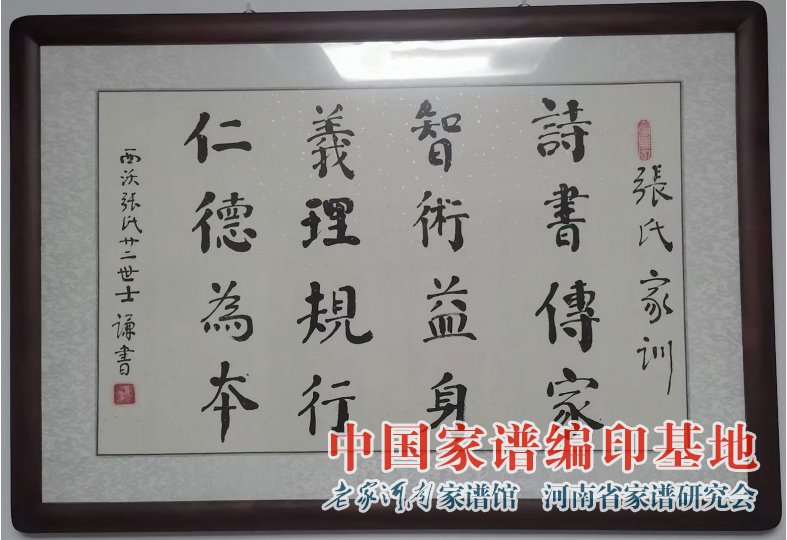 張氏家训
詩書傳家
智術益身
義理規行
仁德為本
西沃張氏廿二世士謙書
中国家谱编印基地
老家河南家谱馆 河南省家谱研究会